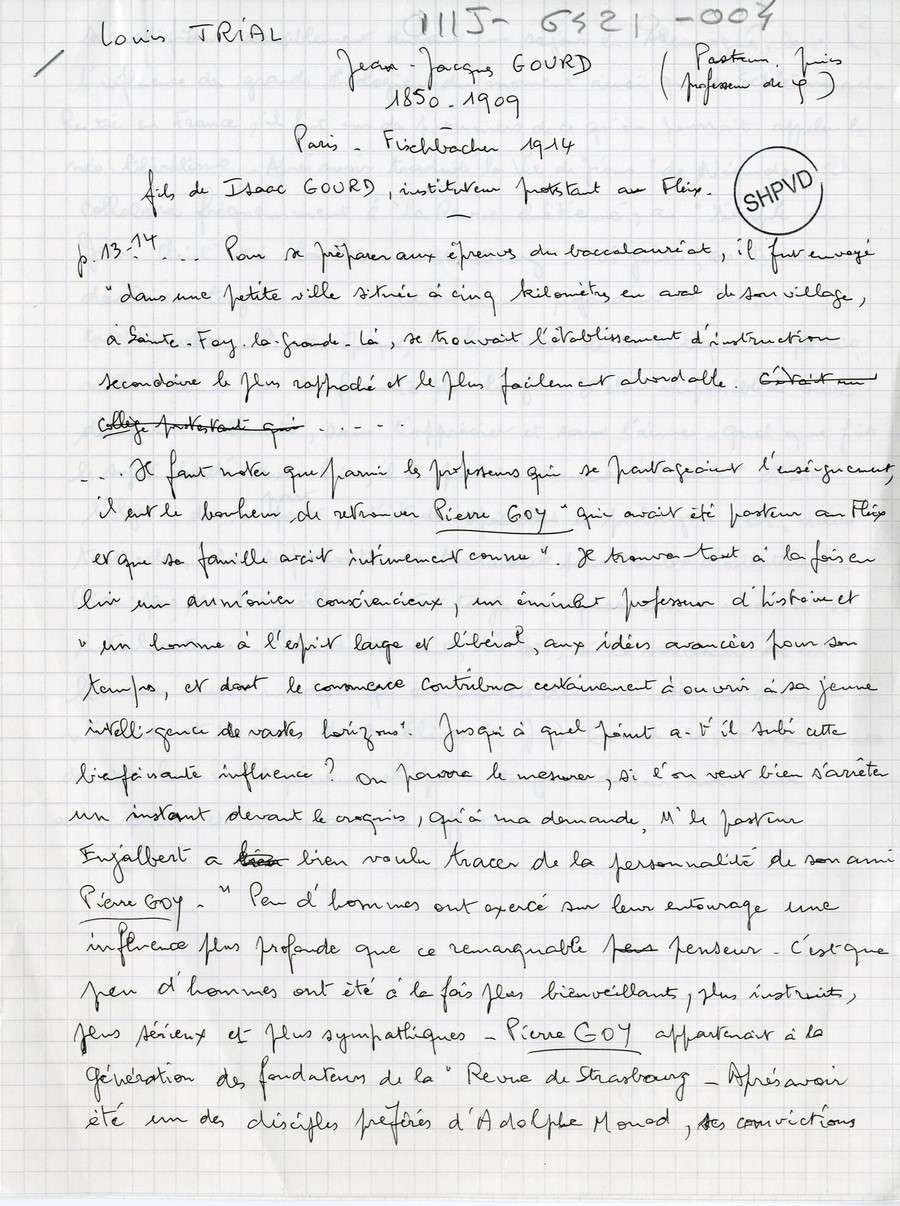 IIIJ- G421 -004
Louis TRIAL
Jean-Jacques GOURD (Pasteur, puis
1850-1909 professeur de φ)
Paris - Fischbacher 1914
fils de Isaac GOURD, instituteur protestant au Fleix.
SHPVD
p. 13-14 ... Pour se préparer aux épreuves du baccalauréat, il fut envoyé
"dans une petite ville située à cinq kilomètres en aval de son village,
à Sainte-Foy-la-Grande - Là, se trouvait l'établissement d'instruction
secondaire le plus rapproché et le plus facilement abordable. C'était un
collège protestant qui .....
... Il faut noter que parmi les professeurs qui se partageaient l'enseignement,
il eut le bonheur de retrouver Pierre GOY "qui avait été pasteur au Fleix
et que sa famille avait intimement connu". Il trouva tout à la fois en
lui un aumônier consciencieux, un éminent professeur d'histoire et
"un homme à l'esprit large et libéral, aux idées avancées pour son
temps, et dont le commerce contribua certainement à ouvrir à sa jeune
intelligence de vastes horizons". Jusqu'à quel point a-t'il subi cette
bienfaisante influence ? On pourra le mesurer, si l'on veut bien s'arrêter
un instant devant le croquis, qu'à ma demande, Mr le pasteur
Enjalbert a bien bien voulu tracer de la personnalité de son ami
Pierre GOY - " Peu d'hommes ont exercé sur leur entourage une
influence plus profonde que ce remarquable pens penseur - C'est que
peu d'hommes ont été à la fois plus bienveillants, plus instruits,
plus sérieux et plus sympathiques - Pierre GOY appartenait à la
génération des fondateurs de la "Revue de Strasbourg - Après avoir
été un des disciples préférés d'Adolphe Monod, ses convictions